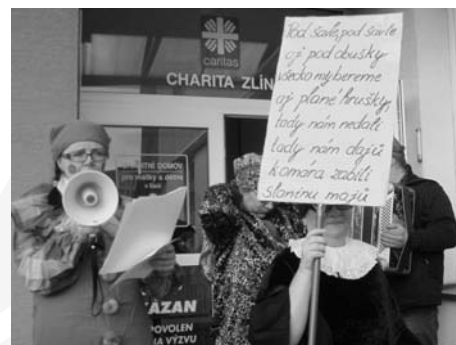 caritas
CHARITA ZLÍN
Pod šavle, pod šavle
aj pod obušky
všecko my bereme
aj plané hrušky,
tady nám nedali
tady nám dajů
komára zabili
slaninu majů
DOMOV
pro matky s dětmi
v tísni
KÁZÁN
POVOLEN
NA VÝZVU